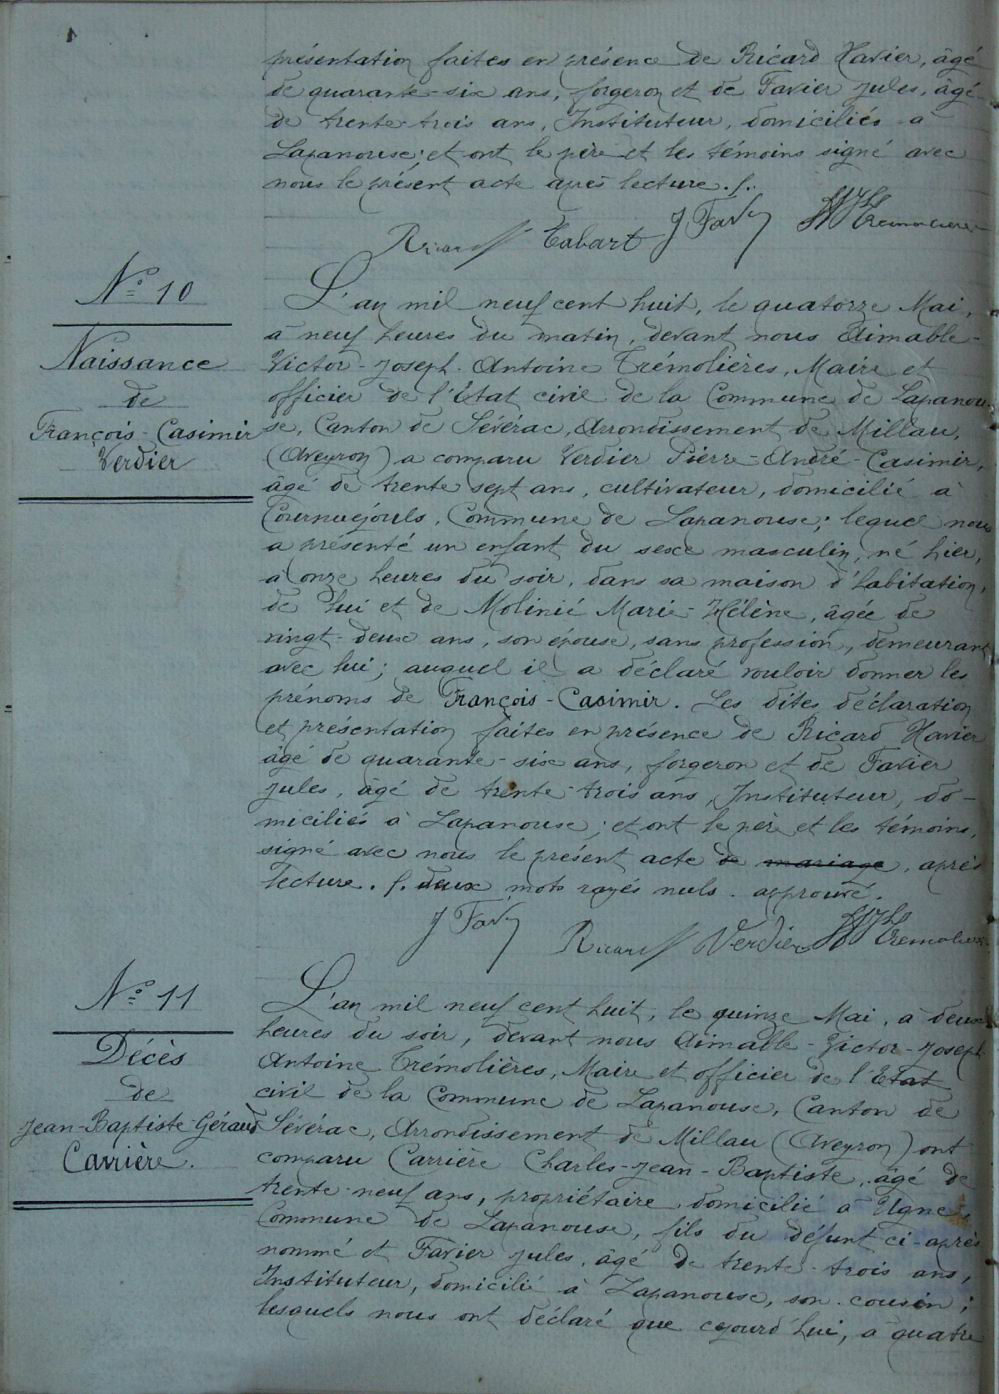 présentation faites en présence de Ricard Xavier, âgé
de quarante-six ans, forgeron et de Favier Jules, âgé
de trente-trois ans, Instituteur, domiciliés à
Lapanouse; et ont le père et les témoins signé avec
nous le présent acte après lecture. /.
Ricard Tabart J Favier Tremolieres
N° 10
Naissance
de
François-Casimir
Verdier
L'an mil neuf cent huit, le quatorze Mai,
à neuf heures du matin, devant nous Aimable-
Victor-Joseph-Antoine Trémolières, Maire et
officier de l'État civil de la Commune de Lapanou-
se, Canton de Sévérac, Arrondissement de Millau,
(Aveyron) a comparu Verdier Pierre-André-Casimir,
âgé de trente sept ans, cultivateur, domicilié à
Cournuéjouls, Commune de Lapanouse; lequel nous
a présenté un enfant du sexe masculin, né hier,
à onze heures du soir, dans sa maison d'habitation,
de lui et de Molinié Marie-Hélène, âgée de
vingt-deux ans, son épouse, sans profession, demeurant
avec lui; auquel il a déclaré vouloir donner les
prénoms de François-Casimir. Les dites déclaration
et présentation faites en présence de Ricard Xavier
âgé de quarante-six ans, forgeron et de Favier
Jules, âgé de trente-trois ans, Instituteur, do-
miciliés à Lapanouse; et ont le père et les témoins,
signé avec nous le présent acte de mariage, après
lecture. /. deux mots rayés nuls. approuvé.
J Favier Ricard Verdier Tremolieres
N° 11
Décès
de
Jean-Baptiste-Géraud
Carrière.
L'an mil neuf cent huit, le quinze Mai, à deux
heures du soir, devant nous Aimable-Victor-Joseph
Antoine Trémolières, Maire et officier de l'État
civil de la Commune de Lapanouse, Canton de
Sévérac, Arrondissement de Millau (Aveyron) ont
comparu Carrière Charles-Jean-Baptiste, âgé de
trente-neuf ans, propriétaire domicilié à
Commune de Lapanouse, fils du défunt ci-après
nommé et Favier Jules, âgé de trente-trois ans,
Instituteur, domicilié à Lapanouse, son cousin;
lesquels nous ont déclaré que cejourd'hui, à quatre